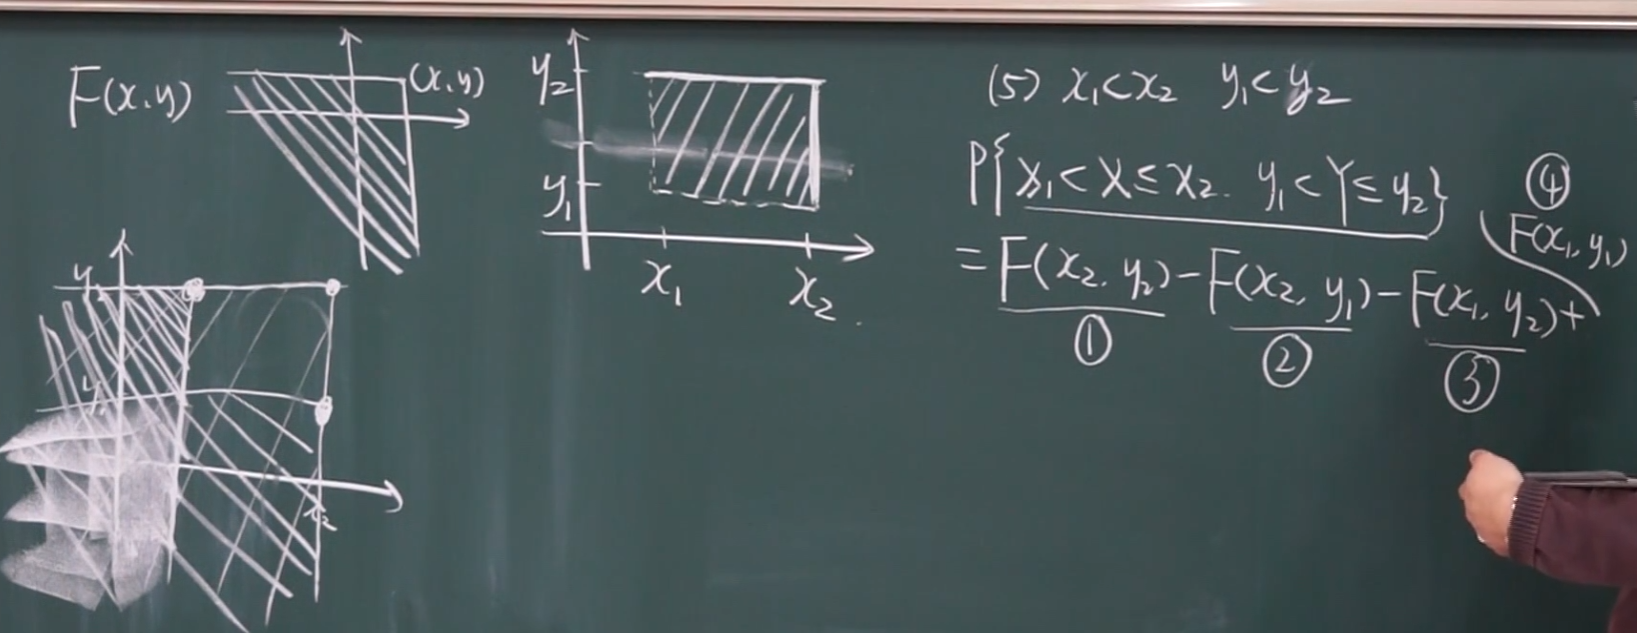 F(x,y)
(x,y)
y₂
y₁
x₁ x₂.
y₂
y₁
x₂
(5) x₁<x₂ y₁<y₂
P{x₁<X≤x₂. y₁<Y≤y₂}
= F(x₂, y₂) - F(x₂, y₁) - F(x₁, y₂) + F(x₁, y₁)
① ② ③ ④